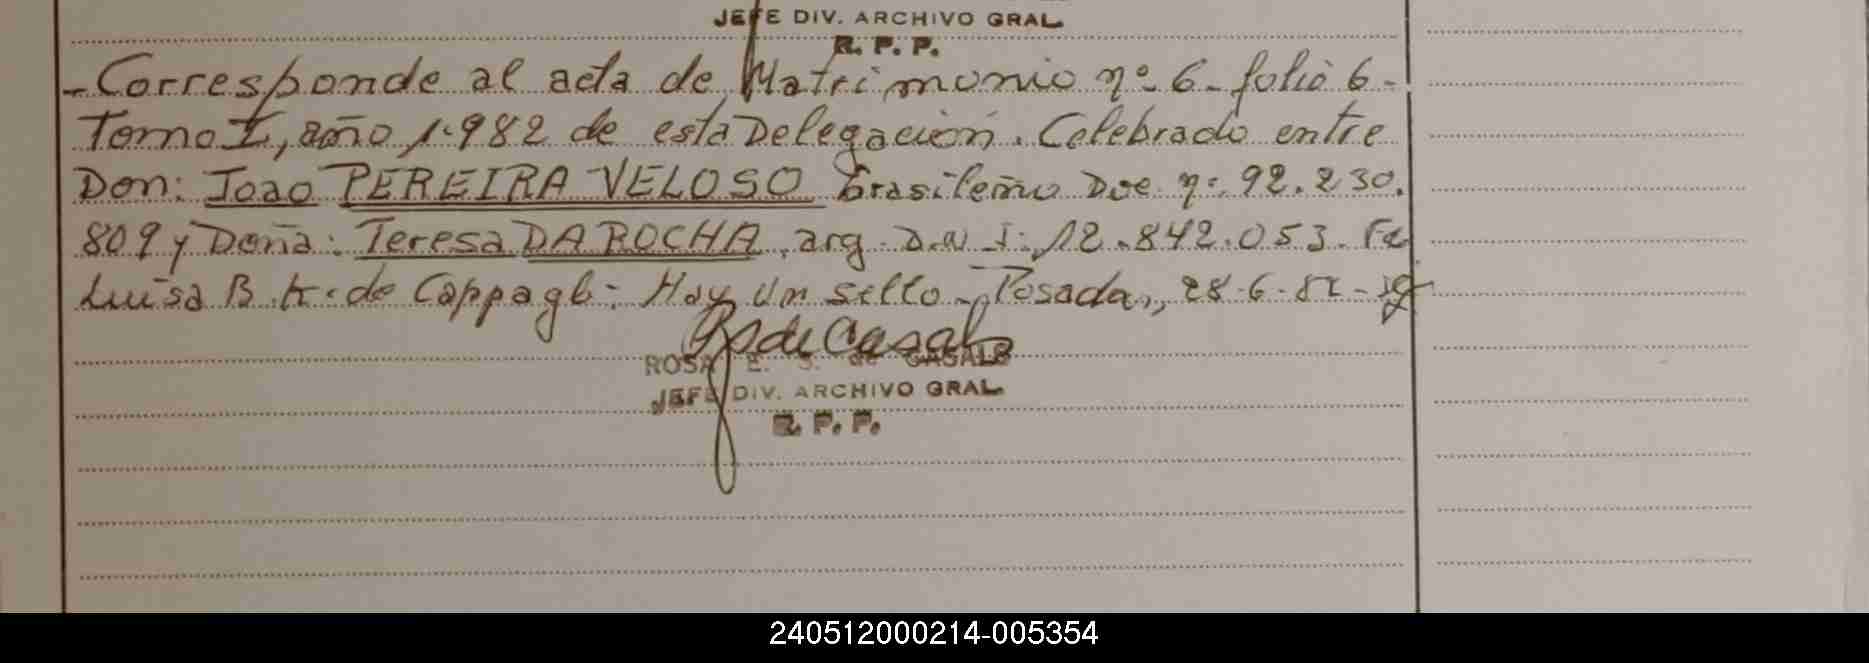 JEFE DIV. ARCHIVO GRAL
R. P. P.
-Corresponde al acta de Matrimonio nº 6- folio 6-
Tomo I, año 1.982 de esta Delegación. Celebrado entre
Don: Joao PEREIRA VELOSO brasileño Doc nº 92.230.
809 y Doña: Teresa DA ROCHA, arg. D.N.I: 12.842.053. Fd
Luisa B. K. de Cappagli- Hay un sello- Posadas, 28-6-82-
R S de Casals
ROSA E. S. de CASALS
JEFE DIV. ARCHIVO GRAL
R. P. P.
240512000214-005354